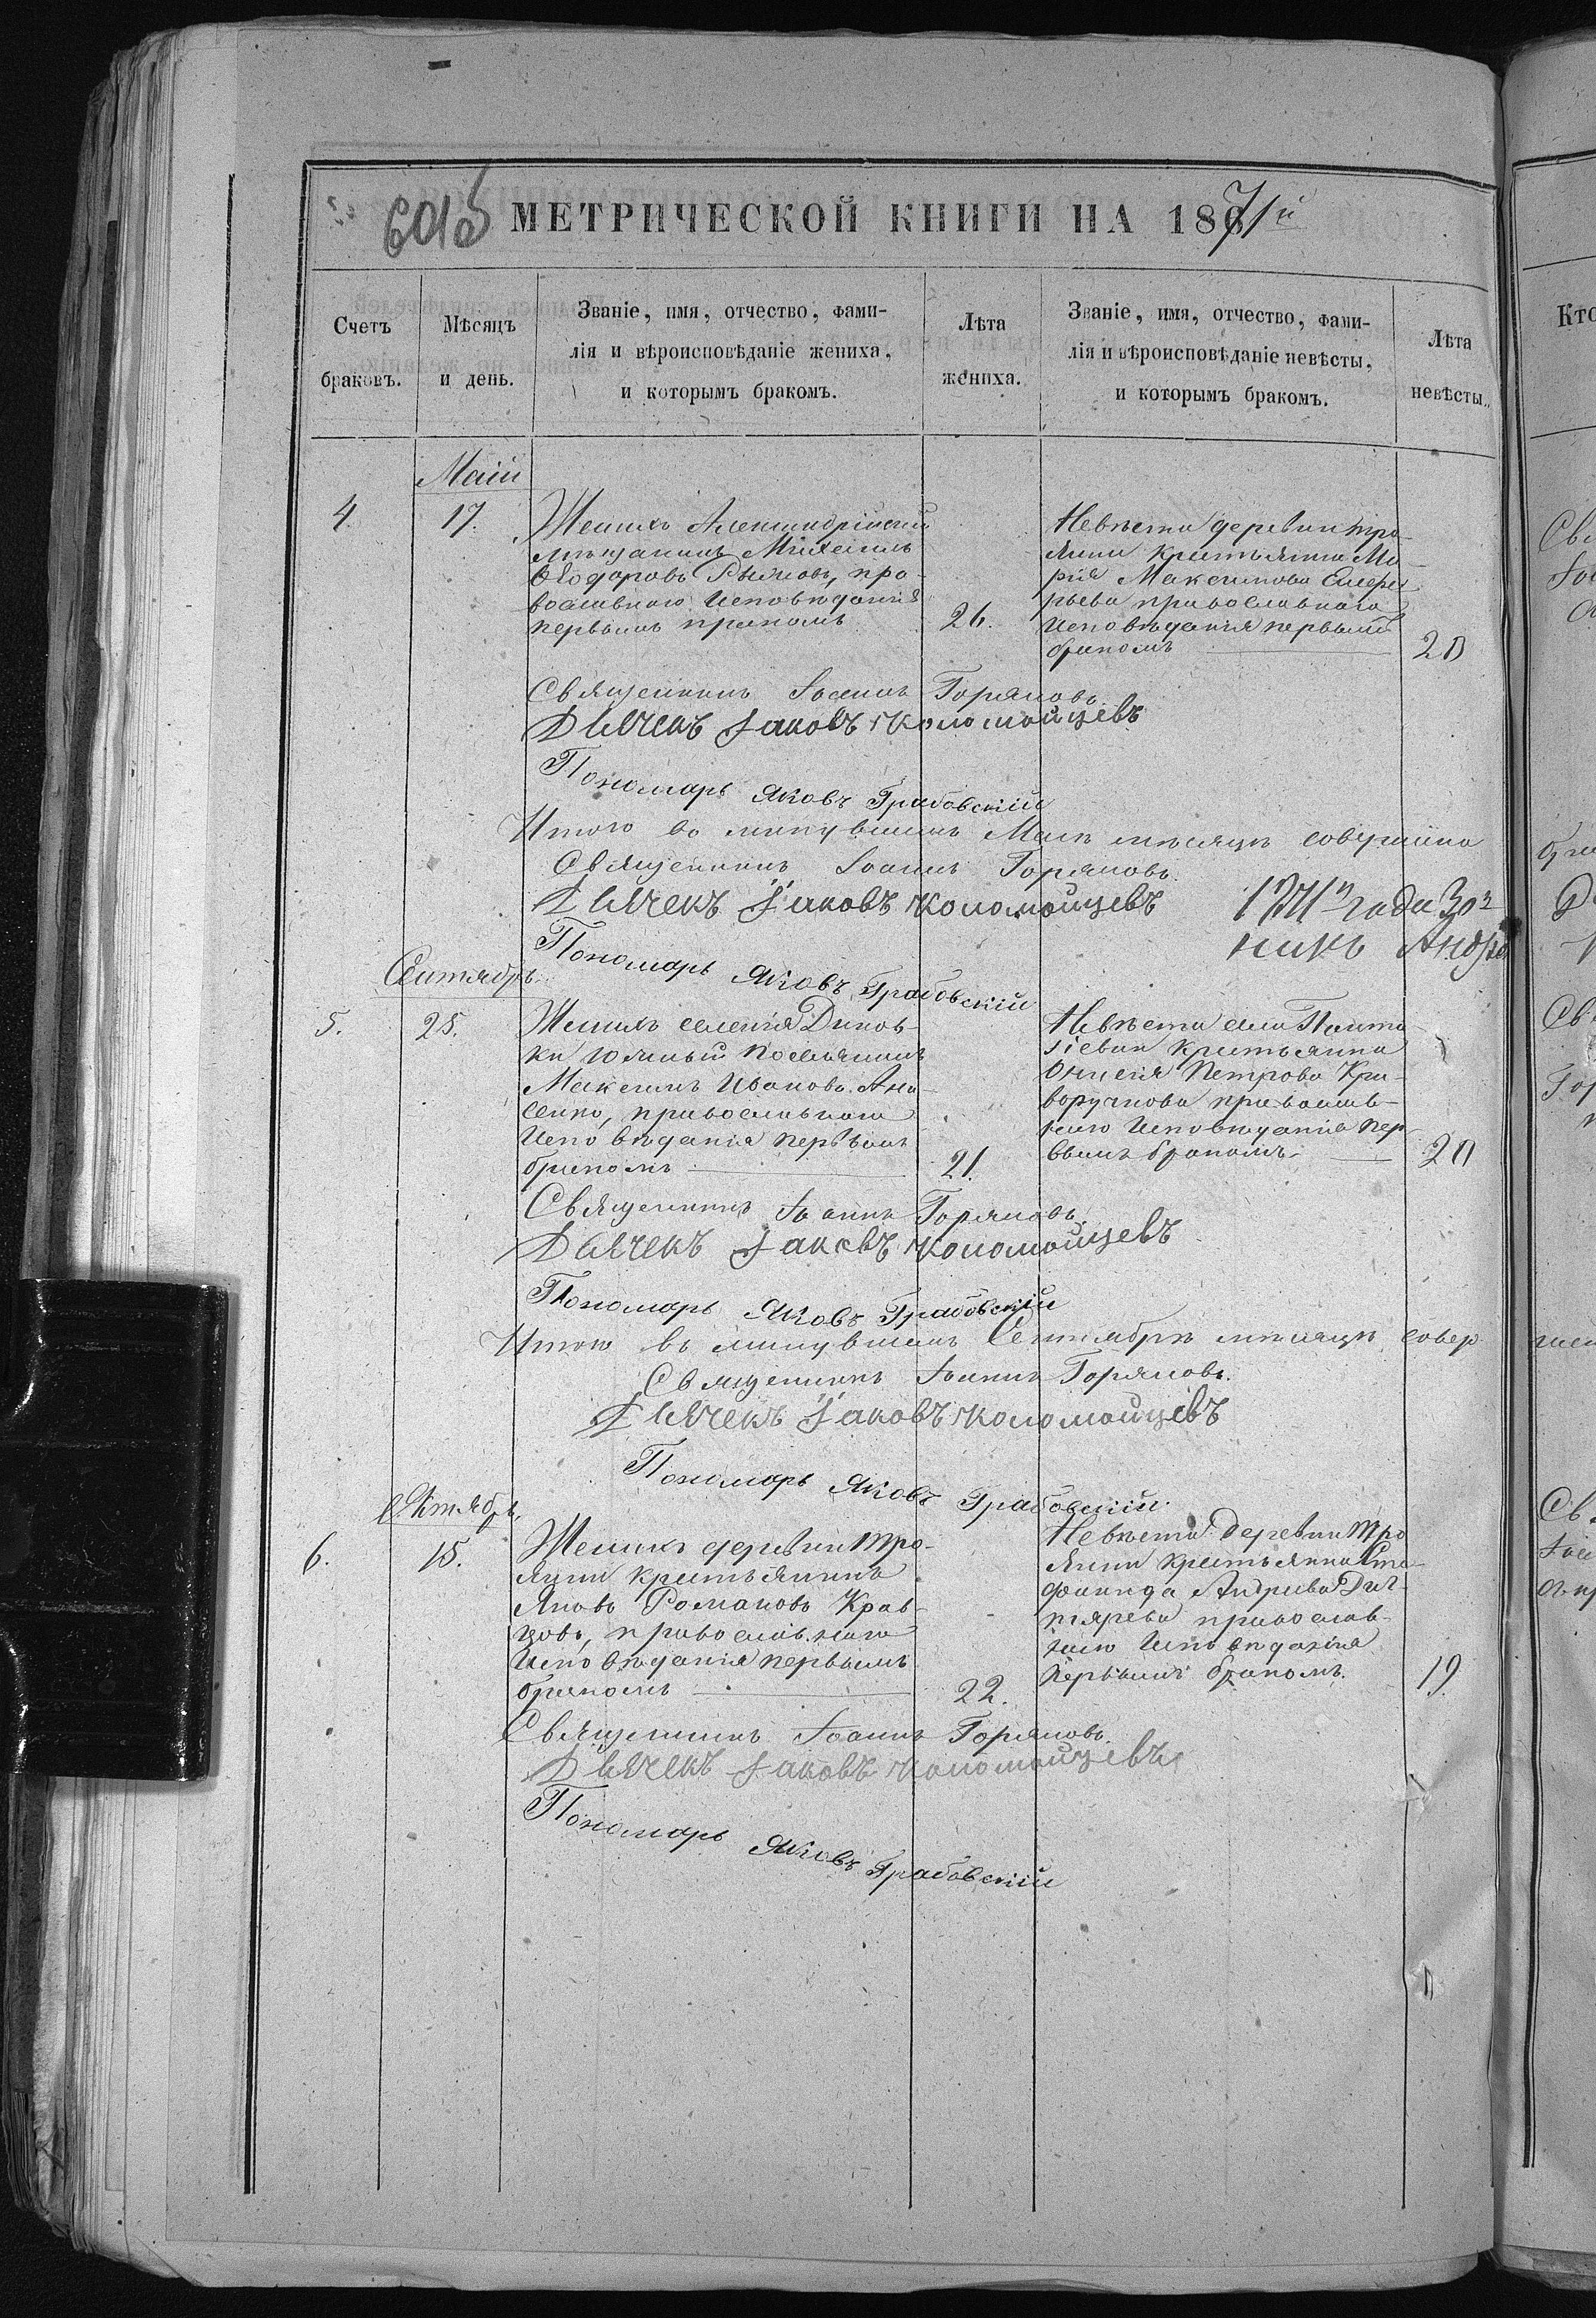 601об
МЕТРИЧЕСКОЙ КНИГИ НА 1871й
Счетъ
браковъ.
Мѣсяцъ
и день.
Званіе, имя, отчество, фами-
лія и вѣроисповѣданіе жениха,
и которымъ бракомъ.
Лѣта
жениха.
Званіе, имя, отчество, фами-
лія и вѣроисповѣданіе невѣсты,
и которымъ бракомъ.
Лѣта
невѣсты.
Маій
4. 17.
Женихъ Александрійскій
мѣщанинъ Михаилъ
Ѳеодоровъ, пра-
вославнаго Исповѣданія
первымъ
26.
Невѣста деревни Тро-
янки крестьянка Ма-
рія Максимова
православнаго
Исповѣданія первымъ
бракомъ
20
Священникъ Іоаннъ Горяновъ
Дьячекъ Іаковъ Коломойцевъ
Пономарь Яковъ Грабовскій
Итого во минувшемъ Маѣ мѣсяцѣ совершено
Священникъ Іоаннъ Горяновъ.
Дьячекъ Іаковъ Коломойцевъ
1871го года
никъ
Пономарь Яковъ Грабовскій
Сентябрь.
5. 25.
Женихъ селенія Диков-
ки Южный Поселянинъ
Максимъ Ивановъ Ана-
сенко, православнаго
Исповѣданія первымъ
бракомъ
21.
Невѣста села Панта-
зіевки крестьянка
Петрова Кри-
воручкова православ-
наго Исповѣданія пер-
вымъ бракомъ.
20
Священникъ Іоаннъ Горяновъ.
Дьячекъ Іаковъ Коломойцевъ
Пономарь Яковъ Грабовскій
Итого въ минувшемъ Сентябрѣ мѣсяцѣ совер
Священникъ Іоаннъ Горяновъ.
Дьячекъ Іаковъ Коломойцевъ
Пономарь Яковъ Грабовскій.
Октябрь.
6. 15.
Женихъ деревни Тро-
янки крестьянинъ
Яковъ Романовъ Крав-
цовъ, православнаго
Исповѣданія первымъ
бракомъ
22.
Невѣста деревни Тро
янки крестьянка Сте-
фанида Андріева Дих-
тярева православ-
наго Исповѣданія
первымъ бракомъ.
19.
Священникъ Іоаннъ Горяновъ.
Дьячекъ Іаковъ Коломойцевъ
Пономарь Яковъ Грабовскій